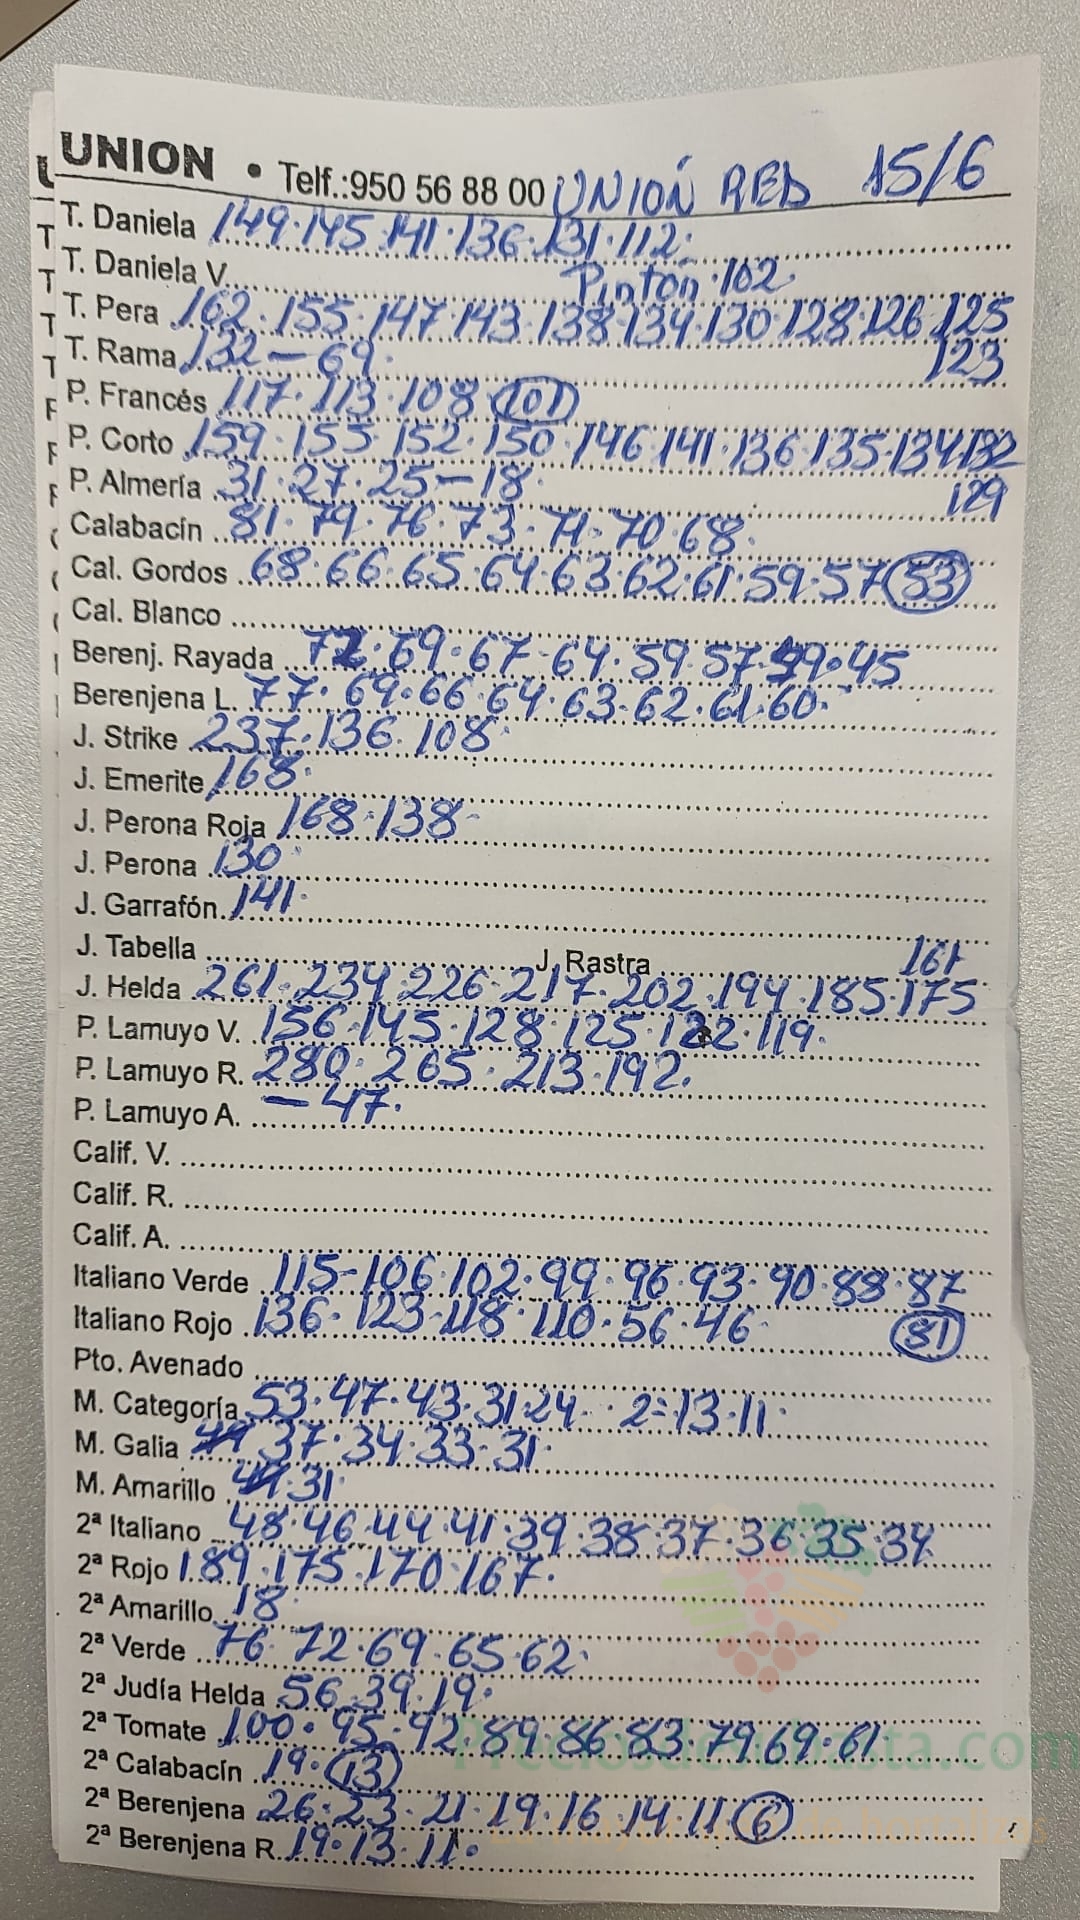 UNION • Telf.:950 56 88 00 UNIÓN RED 15/6
T. Daniela 149·145·141·136·131·112·
T. Daniela V. Pintón·102
T. Pera 162·155·147·143·138·134·130·128·126·125
T. Rama 132-69· 123
P. Francés 117·113·108 (101)
P. Corto 159·155·152·150·146·141·136·135·134·132
P. Almería 31·27·25-18· 129
Calabacín 81·79·76·73·71·70·68·
Cal. Gordos 68·66·65·64·63·62·61·59·57 (53)
Cal. Blanco
Berenj. Rayada 72·69·67·64·59·57·49·45
Berenjena L. 77·69·66·64·63·62·61·60·
J. Strike 237·136·108·
J. Emerite 168·
J. Perona Roja 168·138·
J. Perona 130·
J. Garrafón 141·
J. Tabella J. Rastra 161
J. Helda 261·234·226·217·202·194·185·175
P. Lamuyo V. 156·145·128·125·122·119·
P. Lamuyo R. 280·265·213·192·
P. Lamuyo A. -47·
Calif. V.
Calif. R.
Calif. A.
Italiano Verde 115-106·102·99·96·93·90·88·87
Italiano Rojo 136·123·118·110·56·46· (81)
Pto. Avenado
M. Categoría 53·47·43·31·24· 2=13·11·
M. Galia 37·34·33·31·
M. Amarillo 31·
2ª Italiano 48·46·44·41·39·38·37·36·35·34
2ª Rojo 189·175·170·167·
2ª Amarillo 18·
2ª Verde 76·72·69·65·62·
2ª Judía Helda 56·39·19·
2ª Tomate 100·95·92·89·86·83·79·69·61
2ª Calabacín 19·(13)
2ª Berenjena 26·23·21·19·16·14·11 (6)
2ª Berenjena R. 19·13·11·